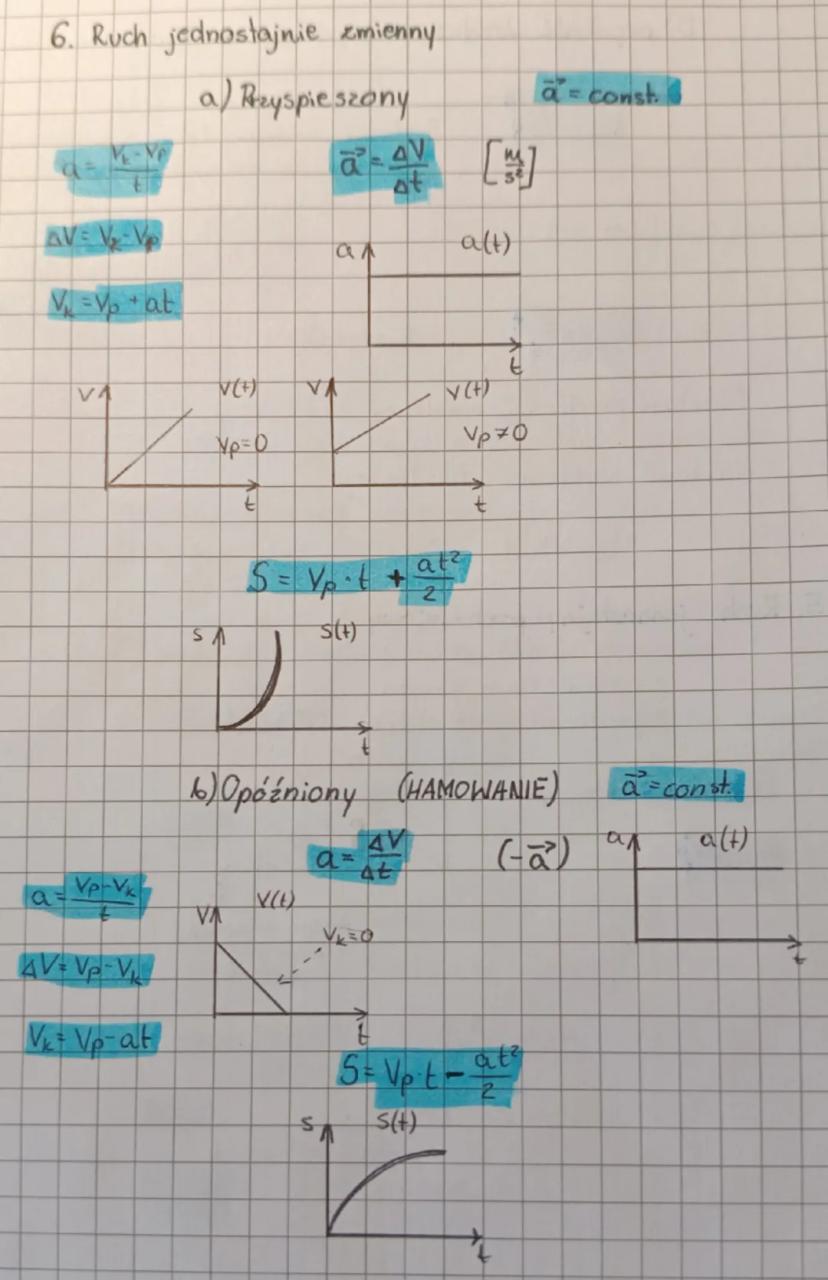 6. Ruch jednostajnie zmienny
a) Przyspieszony
a⃗ = const.
a = (Vk - Vp)/t
a⃗ = ΔV/Δt [m/s²]
ΔV = Vk - Vp
Vk = Vp + at
a a(t)
t
V V(t)
Vp = 0
t
V V(t)
Vp ≠ 0
t
S = Vp · t + at²/2
s s(t)
t
b) Opóźniony (HAMOWANIE) a⃗ = const.
a = ΔV/Δt (-a⃗)
a a(t)
t
a = (Vp - Vk)/t
ΔV = Vp - Vk
Vk = Vp - at
V V(t)
Vk = 0
t
S = Vp · t - at²/2
s s(t)
t